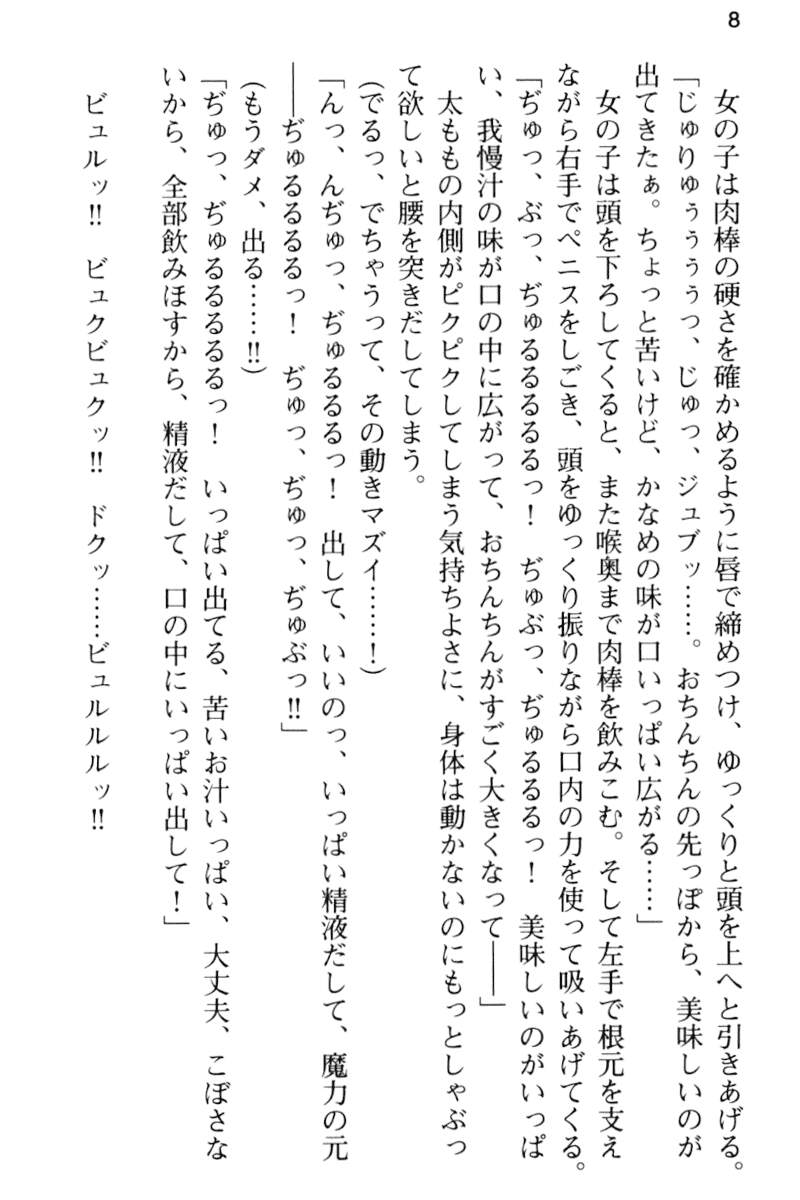 8
女の子は肉棒の硬さを確かめるように唇で締めつけ、ゆっくりと頭を上へと引きあげる。
「じゅりゅぅぅぅぅっ、じゅっ、ジュブッ……。おちんちんの先っぽから、美味しいのが
出てきたぁ。ちょっと苦いけど、かなめの味が口いっぱい広がる……」
女の子は頭を下ろしてくると、また喉奥まで肉棒を飲みこむ。そして左手で根元を支え
ながら右手でペニスをしごき、頭をゆっくり振りながら口内の力を使って吸いあげてくる。
「ぢゅっ、ぶっ、ぢゅるるるるるっ！　ぢゅぶっ、ぢゅるるるっ！　美味しいのがいっぱ
い、我慢汁の味が口の中に広がって、おちんちんがすごく大きくなって――」
太ももの内側がピクピクしてしまう気持ちよさに、身体は動かないのにもっとしゃぶっ
て欲しいと腰を突きだしてしまう。
(でるっ、でちゃうって、その動きマズイ……！)
「んっ、んぢゅっ、ぢゅるるるっ！　出して、いいのっ、いっぱい精液だして、魔力の元
――ぢゅるるるるっ！　ぢゅっ、ぢゅっ、ぢゅぶっ!!」
(もうダメ、出る……!!)
「ぢゅっ、ぢゅるるるるるっ！　いっぱい出てる、苦いお汁いっぱい、大丈夫、こぼさな
いから、全部飲みほすから、精液だして、口の中にいっぱい出して！」
ビュルッ!!　ビュクビュクッ!!　ドクッ……ビュルルルッ!!